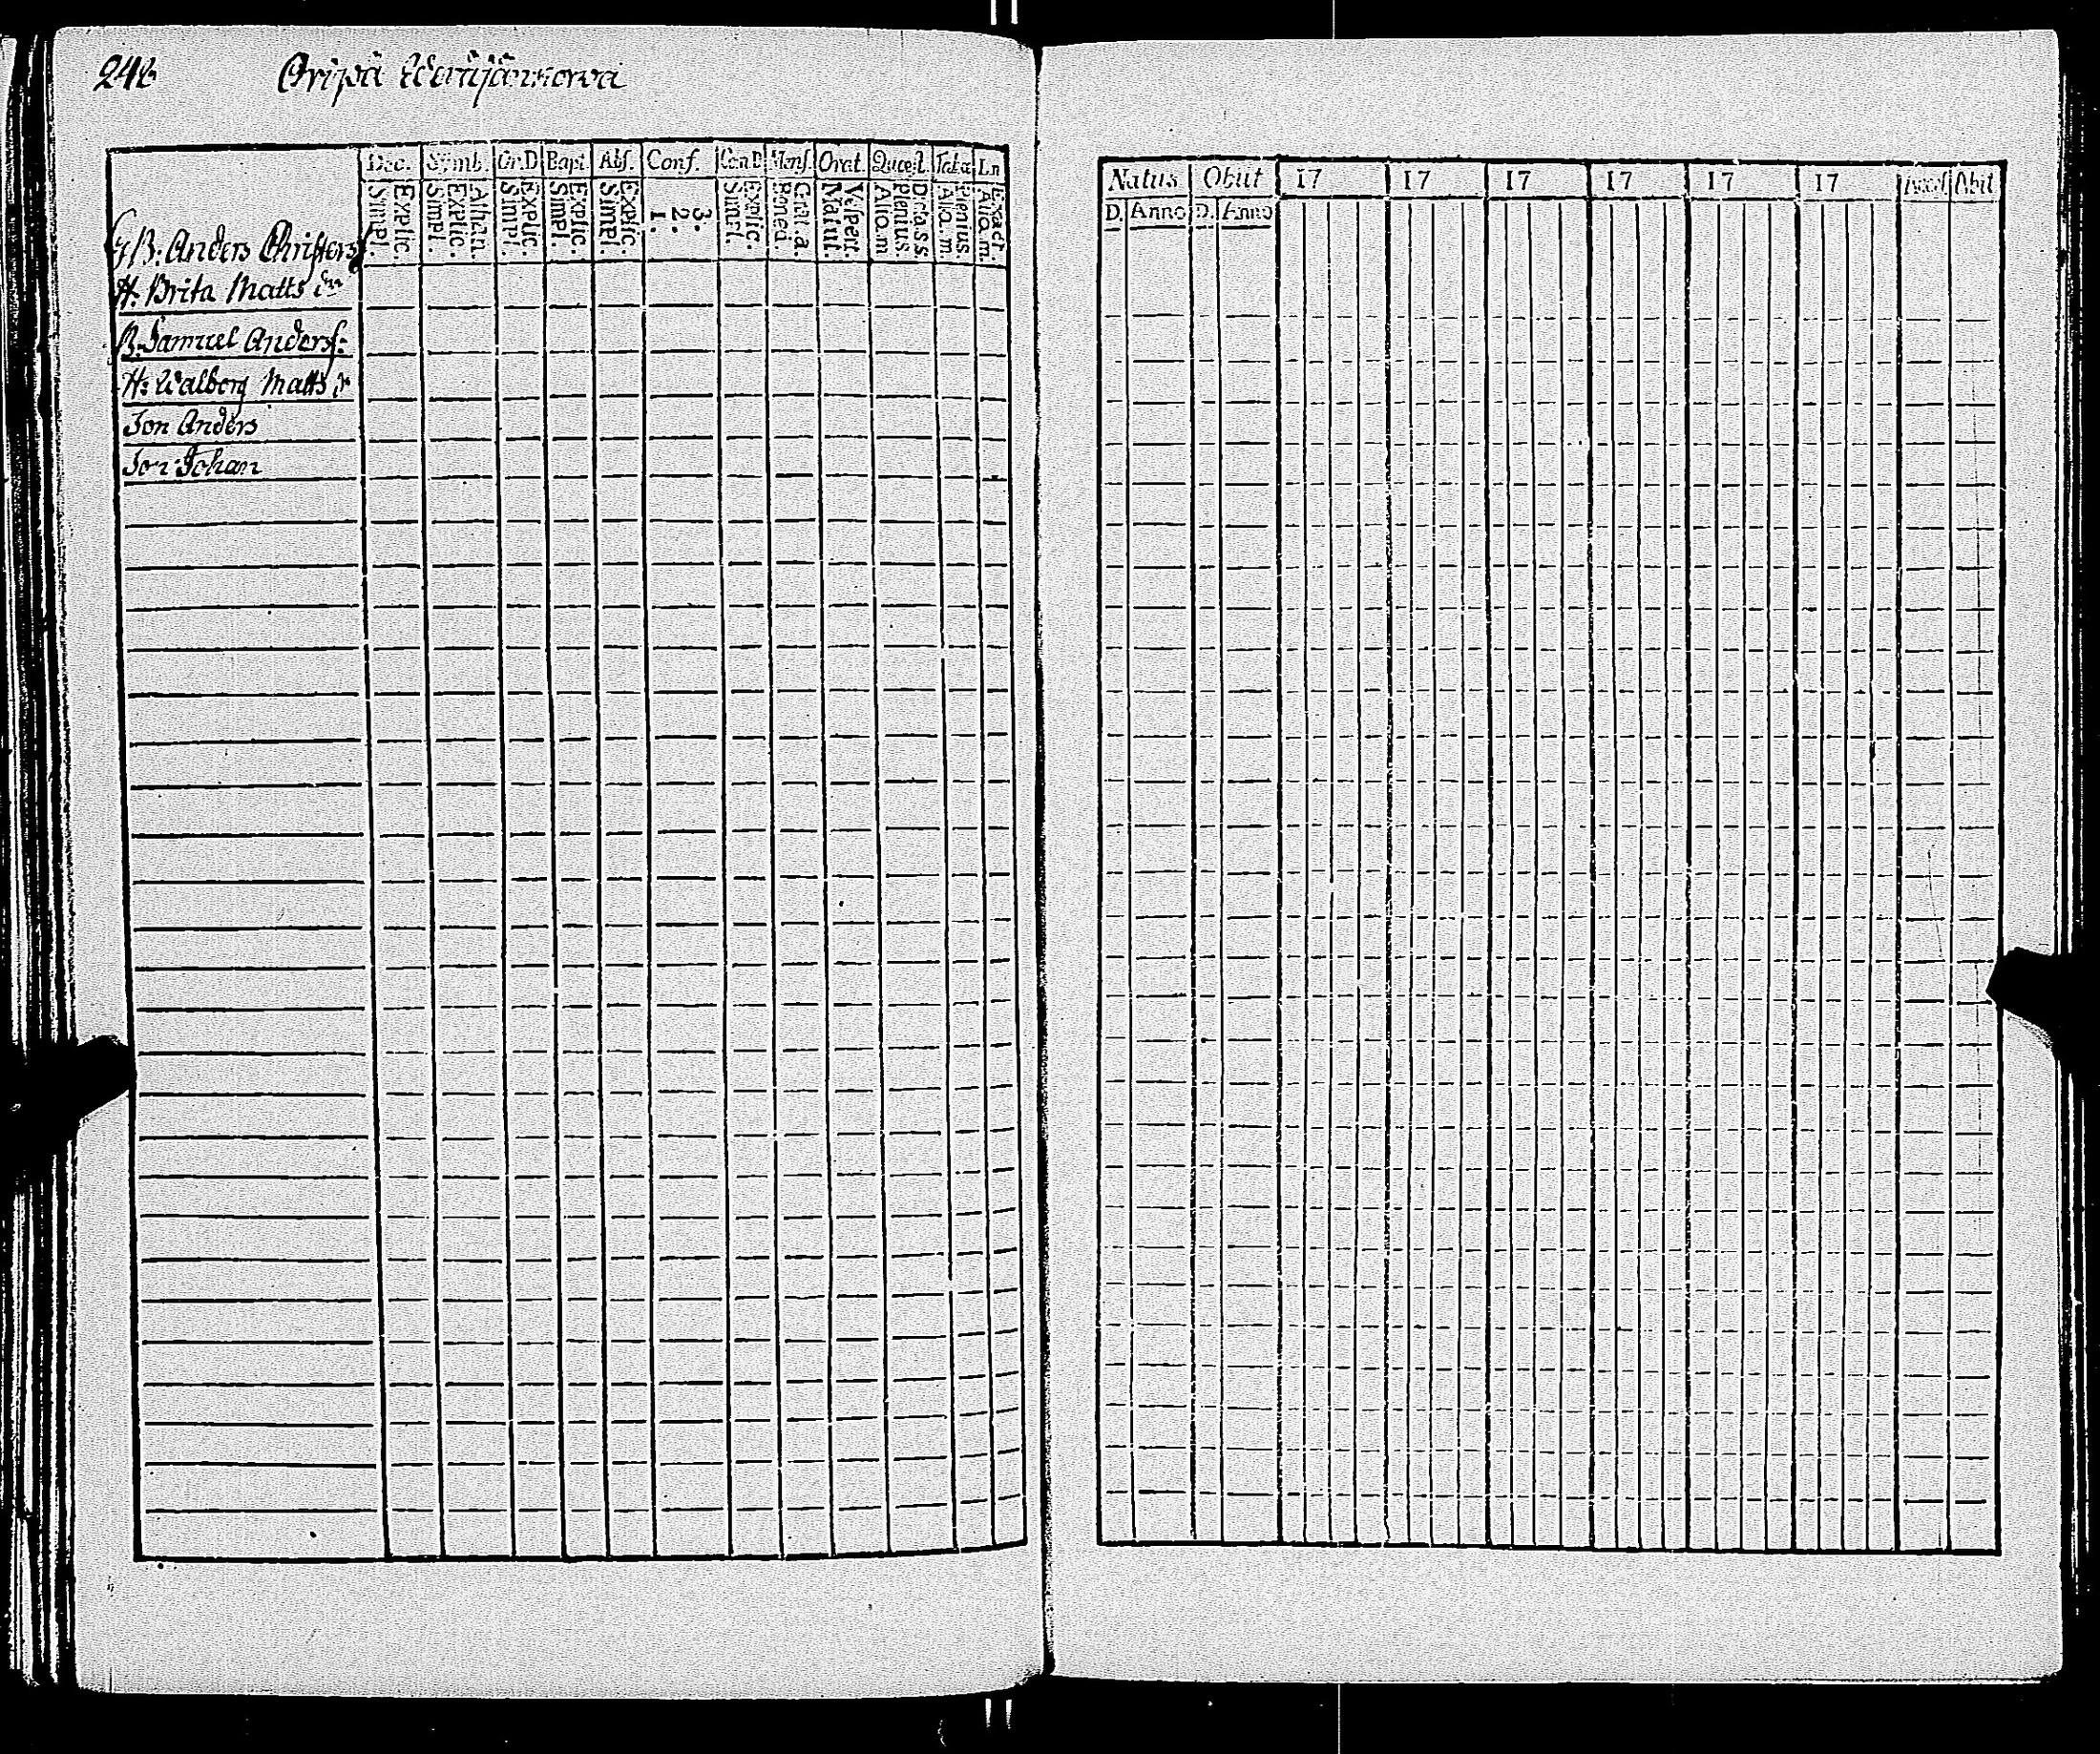 246 Oripä
Dec. Symb. Or.D Bapt. Abs. Conf. Cen.D Mens. Orat. Quæst. Tab.œ Ln
Simpl. Explic. Simpl. Explic. Athan. Simpl. Explic. Simpl. Explic. Simpl. Explic. 1. 2. 3. Simpl. Explic. Bened. Grat. a. Matut. Vespert. Aliq. m. Plenius Dictass. Aliq. m. Plenius. Aliq. m. Exact.
GB: Anders Christers
H. Brita Matts dr
B. Samuel Anders:
H: Walborg Matts dr
Son Anders
Son Johan
Natus Obiit 17 17 17 17 17 17 Abiit
D. Anno D. Anno